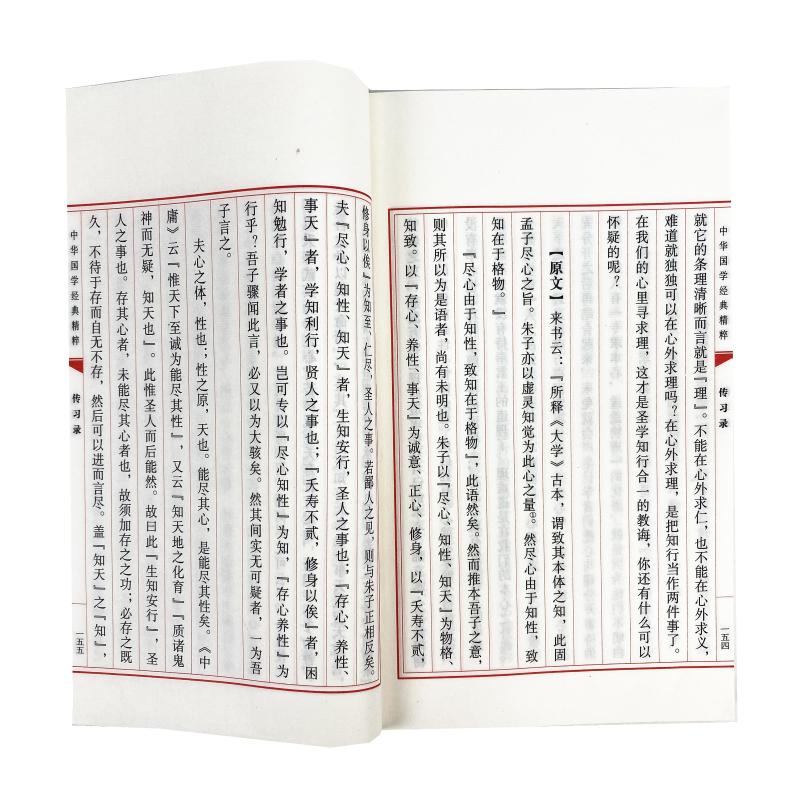 就它的条理清晰而言就是『理』。不能在心外求仁，也不能在心外求义，
难道就独独可以在心外求理吗？在心外求理，是把知行当作两件事了。
在我们的心里寻求理，这才是圣学知行合一的教诲，你还有什么可以
怀疑的呢？
【原文】来书云：『所释《大学》古本，谓致其本体之知，此固
孟子尽心之旨。朱子亦以虚灵知觉为此心之量①。然尽心由于知性，致
知在于格物。』
『尽心由于知性，致知在于格物』，此语然矣。然而推本吾子之意，
则其所以为是语者，尚有未明也。朱子以『尽心、知性、知天』为物格、
知致。以『存心、养性、事天』为诚意、正心、修身，以『夭寿不贰，
中华国学经典精粹
传习录
一五四
修身以俟』为知至、仁尽，圣人之事。若鄙人之见，则与朱子正相反矣。
夫『尽心、知性、知天』者，生知安行，圣人之事也；『存心、养性、
事天』者，学知利行，贤人之事也；『夭寿不贰，修身以俟』者，困
知勉行，学者之事也。岂可专以『尽心知性』为知，『存心养性』为
行乎？吾子骤闻此言，必又以为大骇矣。然其间实无可疑者，一为吾
子言之。
夫心之体，性也；性之原，天也。能尽其心，是能尽其性矣。《中
庸》云『惟天下至诚为能尽其性』，又云『知天地之化育』『质诸鬼
神而无疑，知天也』。此惟圣人而后能然。故曰此『生知安行』，圣
人之事也。存其心者，未能尽其心者也，故须加存之之功；必存之既
久，不待于存而自无不存，然后可以进而言尽。盖『知天』之『知』，
中华国学经典精粹
传习录
一五五